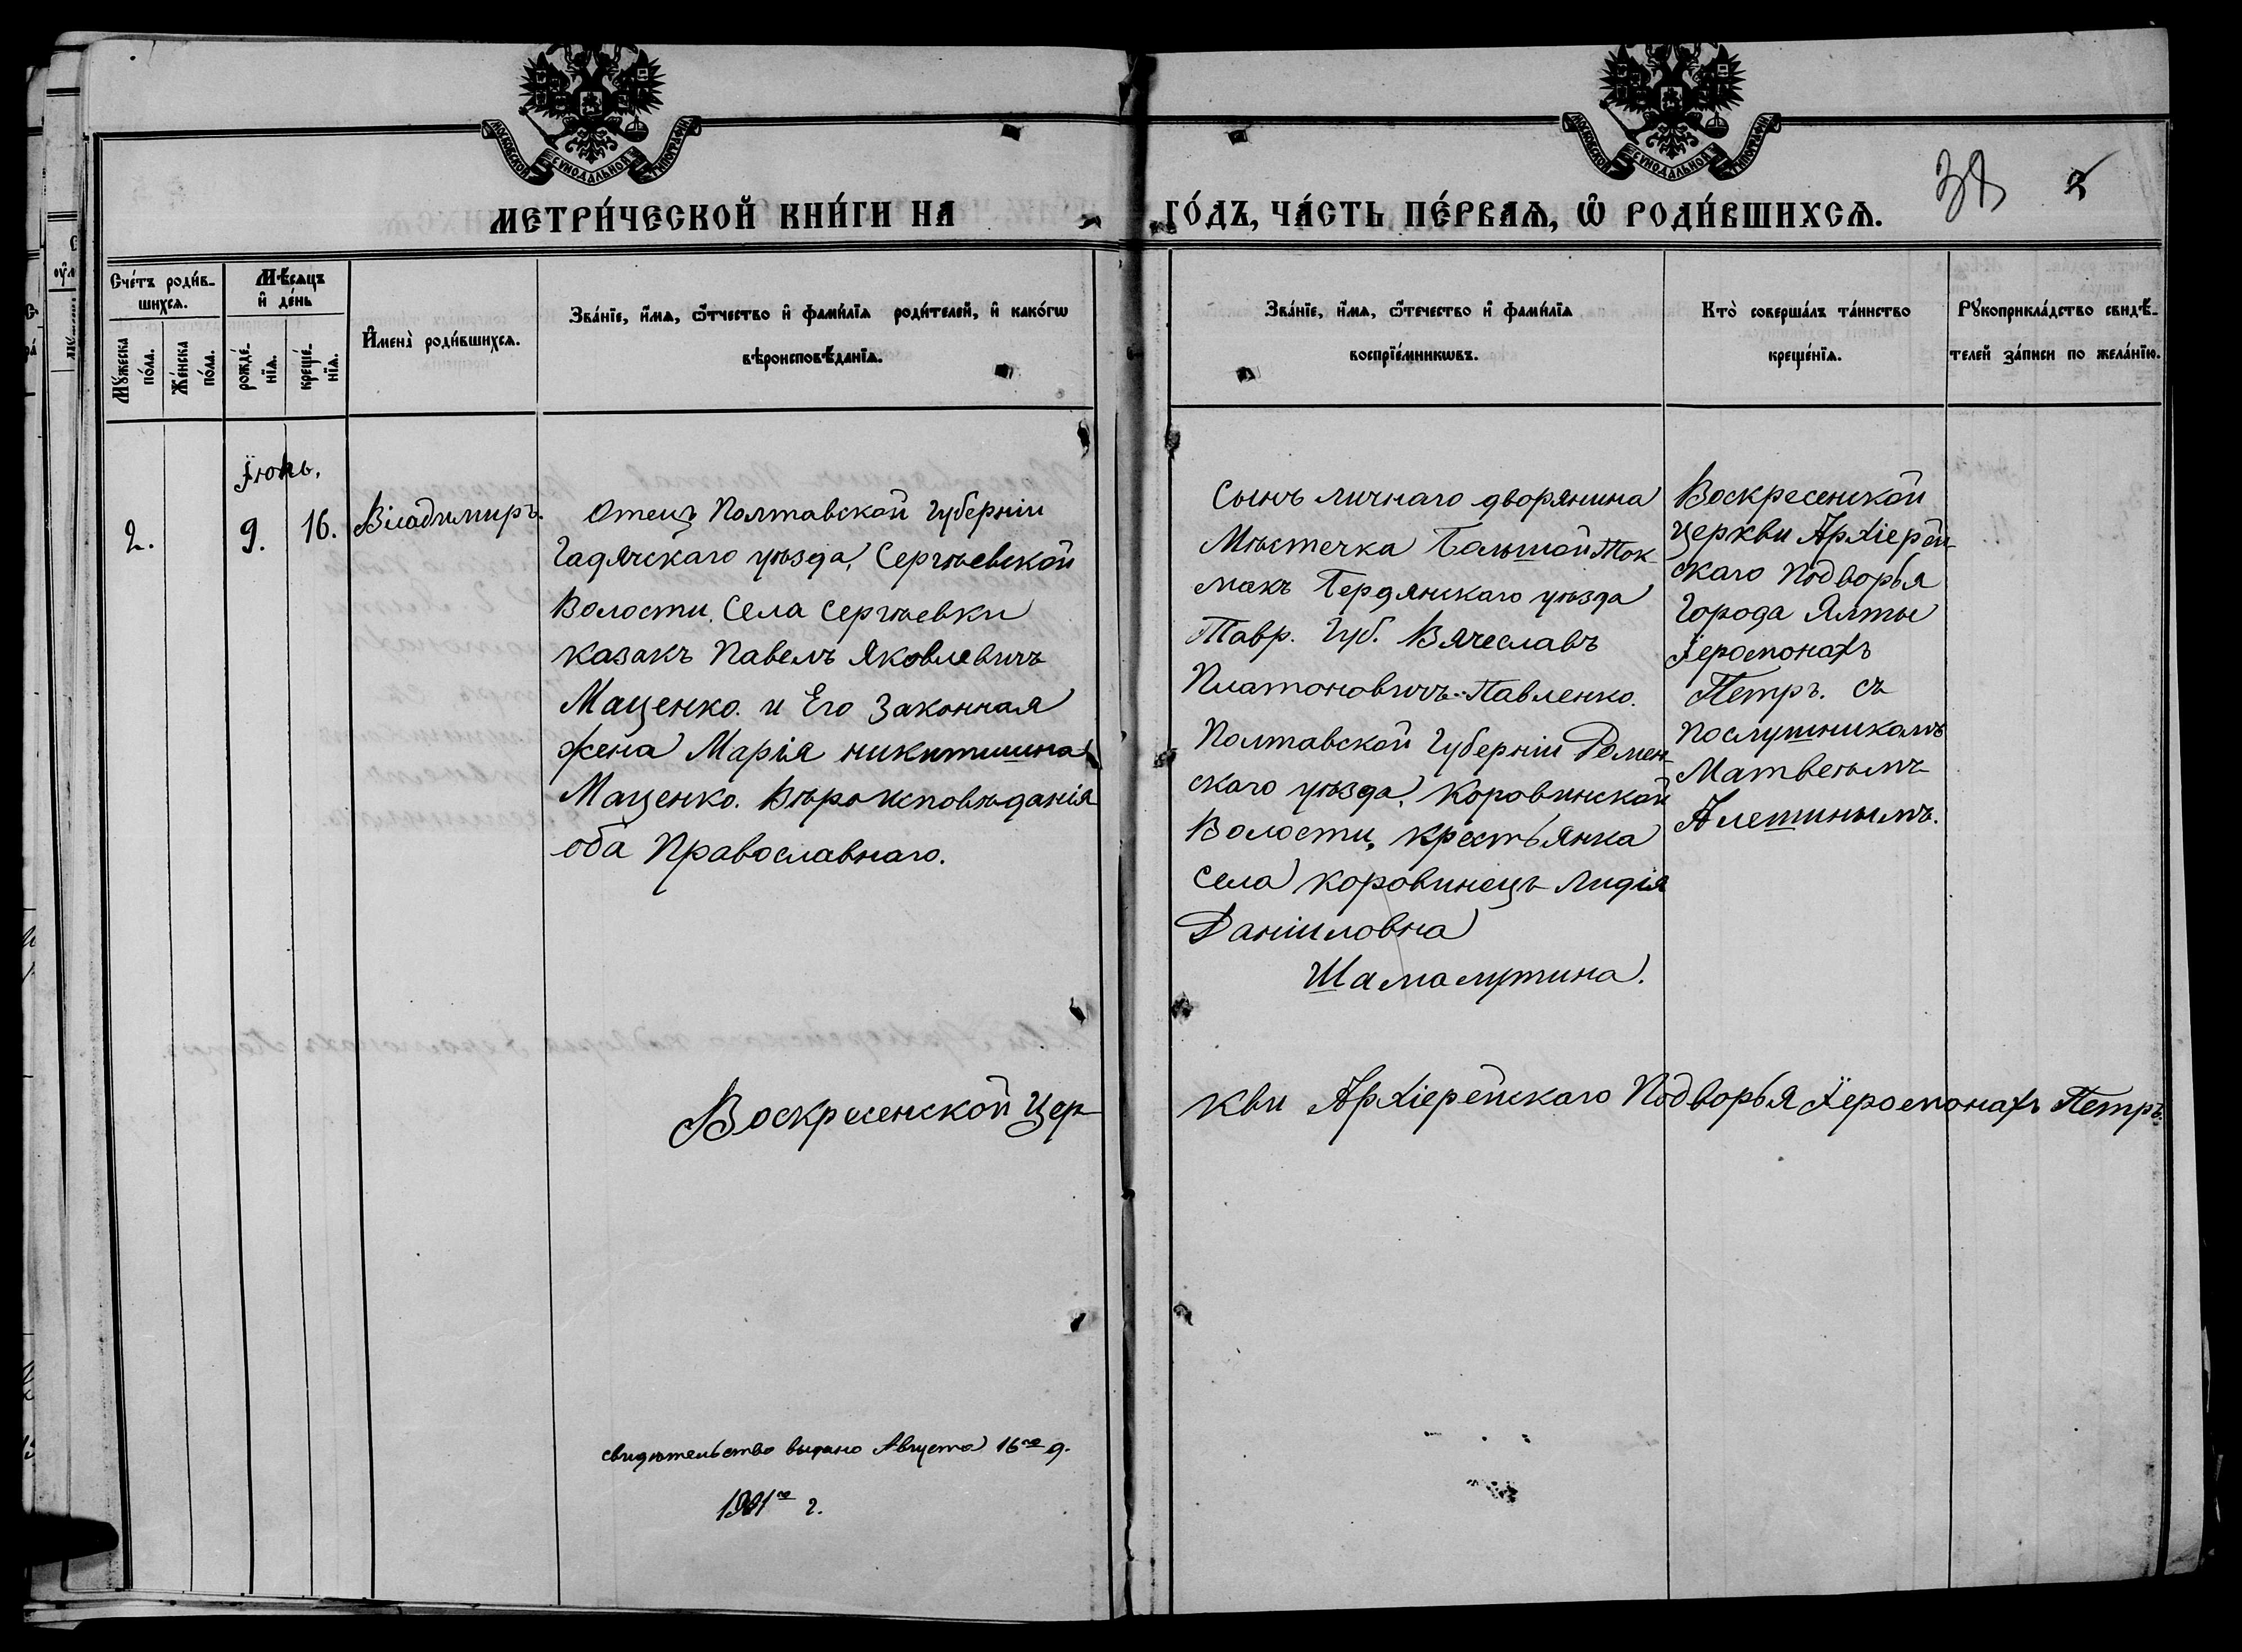 МОСКОВСКОЙ СѴНОДАЛЬНОЙ ТИПОГРАФІИ
МОСКОВСКОЙ СѴНОДАЛЬНОЙ ТИПОГРАФІИ
38
МЕТРИ́ЧЕСКОЙ КНИ́ГИ НА ГО́ДЪ, ЧА́СТЬ ПЕ́РВАѦ, Ѡ҆ РОДИ́ВШИХСѦ.
Сче́тъ роди́в-
шихсѧ.
Му́жеска
по́ла.
Же́нска
по́ла.
Мѣ́сѧцъ
и҆ де́нь
рожде́-
нїѧ.
креще́-
нїѧ.
И҆мена̀ роди́вшихсѧ.
Зва́нїе, и҆́мѧ, ѻ҆́тчество и҆ фами́лїѧ роди́телей, и҆ како́гѡ
вѣроисповѣ́данїѧ.
Зва́нїе, и҆́мѧ, ѻ҆́течество и҆ фами́лїѧ
воспрїе́мникѡвъ.
Кто̀ соверша́лъ та́инство
креще́нїѧ.
Рꙋкоприкла́дство свидѣ́-
телей за́писи по жела́нїю.
Їюнь.
2.
9.
16.
Владимиръ.
Отецъ Полтавской Губерніи
Гадячскаго уѣзда, Сергѣевской
Волости, Села Сергѣевки
казакъ Павелъ Яковлевичъ
Маценко. и Его Законная
жена Марія никитишна
Маценко. Вѣроисповѣданія
оба Православнаго.
Сынъ личнаго дворянина
Мѣстечка Большой Ток-
макъ Бердянскаго уѣзда
Тавр. Губ. Вячеславъ
Платоновичъ Павленко.
Полтавской Губерніи Ромен-
скаго уѣзда, Коровинской
Волости, крестьянка
Села Коровинецъ Лидія
Даніиловна
Шамалутина.
Воскресенской
церкви Архіерей-
скаго Подворья
Города Ялты
Їеромонахъ
Петръ. съ
Послушникомъ
Матвеемъ
Алешинымъ.
Воскресенской Цер-
кви Архіерейскаго Подворья Їеромонахъ Петръ.
свидѣтельство выдано Августа 16го д.
1901го г.